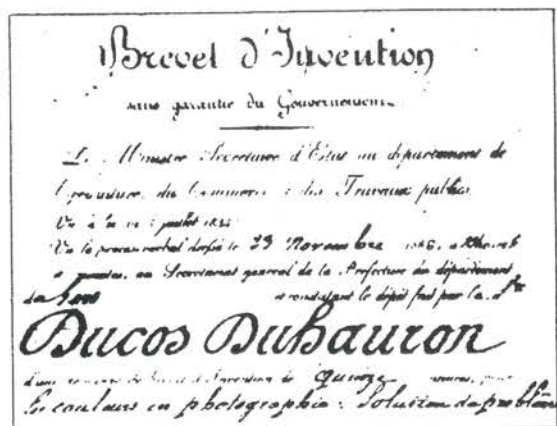 Brevet d'Invention
sans garantie du Gouvernement.
Le Ministre Secrétaire d'Etat au département de
du Commerce des Travaux publics
Vu la loi du 5 juillet 1844
Vu le procès-verbal dressé le 23 Novembre
minutes, au Secrétariat général de la Préfecture du département
du et constatant le dépôt fait par le S.
Ducos Duhauron
d'une de Brevet d'Invention de quinze années, pour
Les couleurs en photographie : Solution du problème